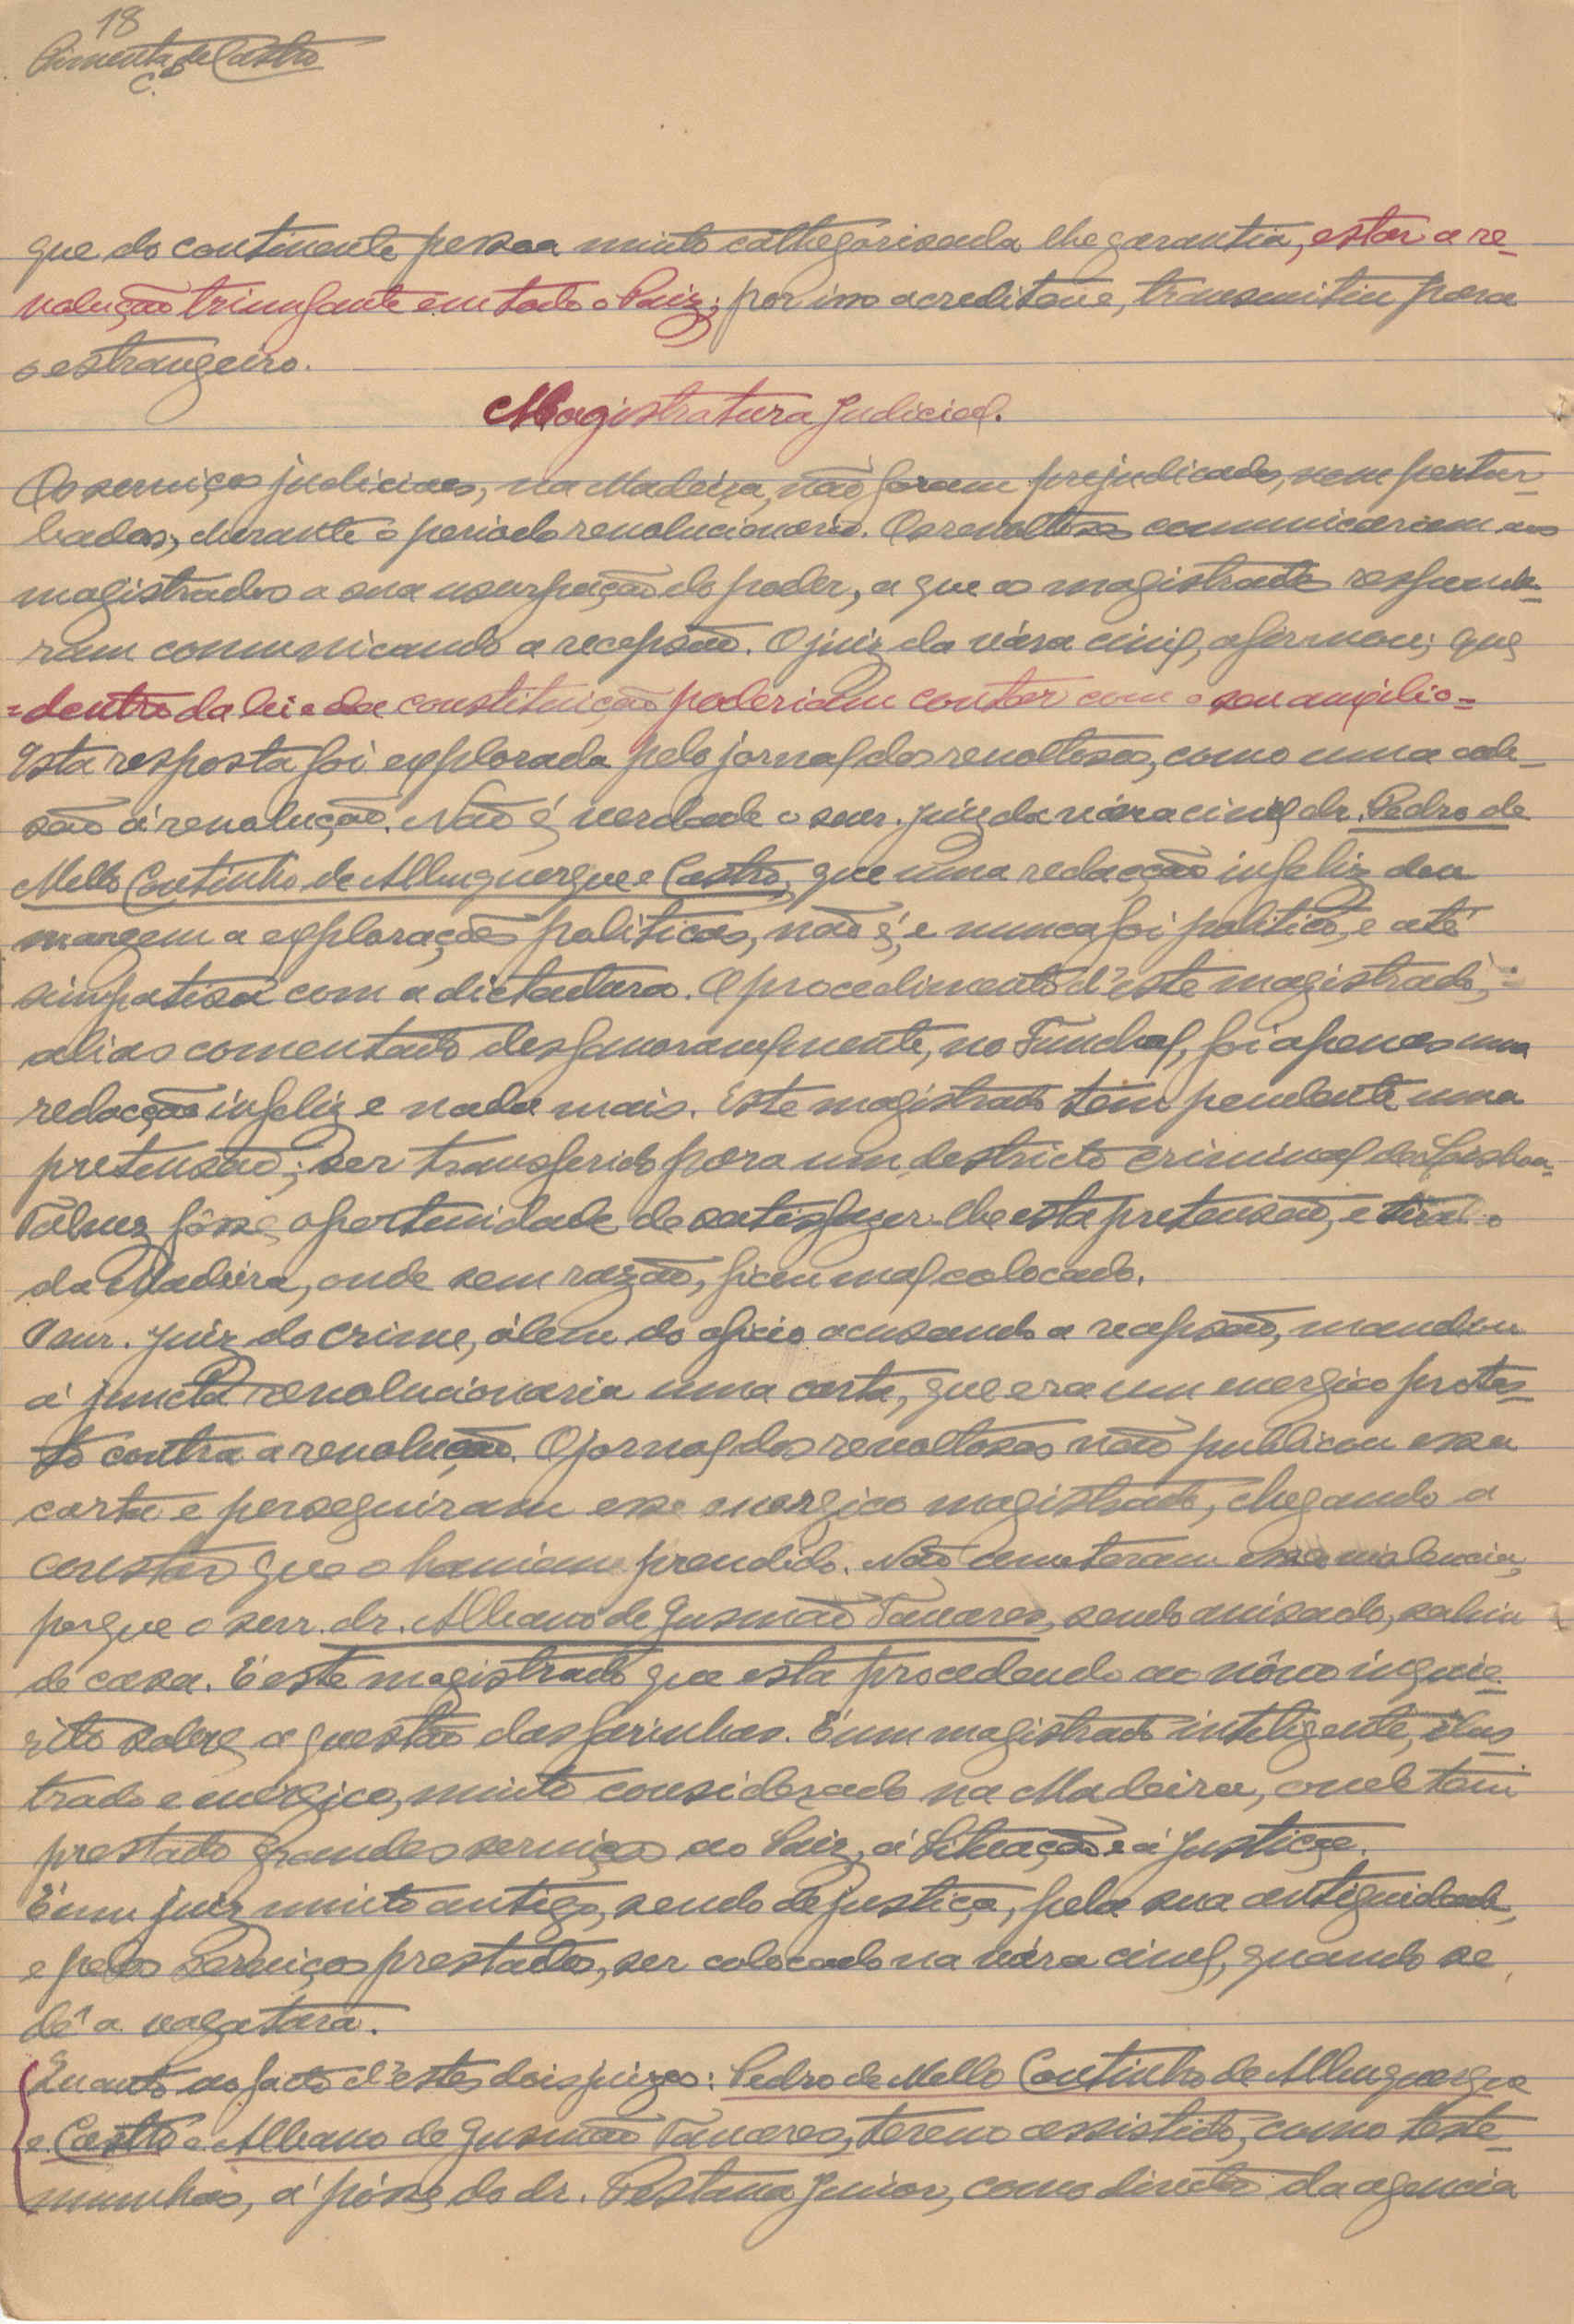 18
Pimenta de Castro
C.el
que do continente pessoa muito cathegorisada lhe garantia, estar a re-
volução triumfante em todo o Paiz; por isso acreditou e, transmitiu para
o estrangeiro.
Magistratura Judicial.
Os serviços judiciaes, na Madeira, não foram prejudicados, nem pertur-
bados, durante o periodo revolucionario. Os revoltosos comunicaram aos
magistrados a sua usurpação do poder, a que os magistrados responde-
ram comunicando a recepsão. O juiz da vára civil, afirmou; que
=dentro da lei e da constituição poderiam contar com o seu auxilio=
Esta resposta foi explorada pelo jornal dos revoltosos, como uma ade-
são á revolução. Não é verdade o snr. juiz da vára civil dr. Pedro de
Mello Coutinho de Albuquerque e Castro, que uma redacção infeliz deu
margem a explorações politicas, não é, e nunca foi politico, e até
simpatisa com a dictadura. O procedimento d'este magistrado,
alias comentado desfavoravelmente, no Funchal, foi apenas uma
redacção infeliz e nada mais. Este magistrado tem pendente uma
pretensão; ser transferido para um destricto criminal de Lisboa.
Talvez fôsse oportunidade de satisfazer-lhe esta pretensão, e tiral-o
da Madeira, onde sem razão, ficou mal colocado.
O snr. juiz do crime, álem do oficio acusando a recepsão, mandou
á juncta revolucionaria uma carta, que era um energico protes-
to contra a revolução. O jornal dos revoltosos não publicou essa
carta e perseguiram esse energico magistrado, chegando a
constar que o haviam prendido. Não cometeram essa violencia,
porque o snr. dr. Albano de Gusmão Tavares, sendo avisado, sahiu
de casa. É este magistrado que esta procedendo ao nôvo inque-
rito sobre a questão das farinhas. É um magistrado inteligente, ilus
trado e energico, muito considerado na Madeira, onde tem
prestado grandes serviços ao Paiz, á Situação e á justiça.
É um juiz muito antigo, sendo de justiça, pela sua antiguidade,
e pelos serviços prestados, ser colocado na vára civel, quando se
dê a vagatura.
Quanto ao facto d'estes dois juizes: Pedro de Mello Coutinho de Albuquerque
e Castro e Albano de Gusmão Tavares, terem assistido, como teste-
munhas, á pósse do dr. Pestana Junior, como diretor da agencia